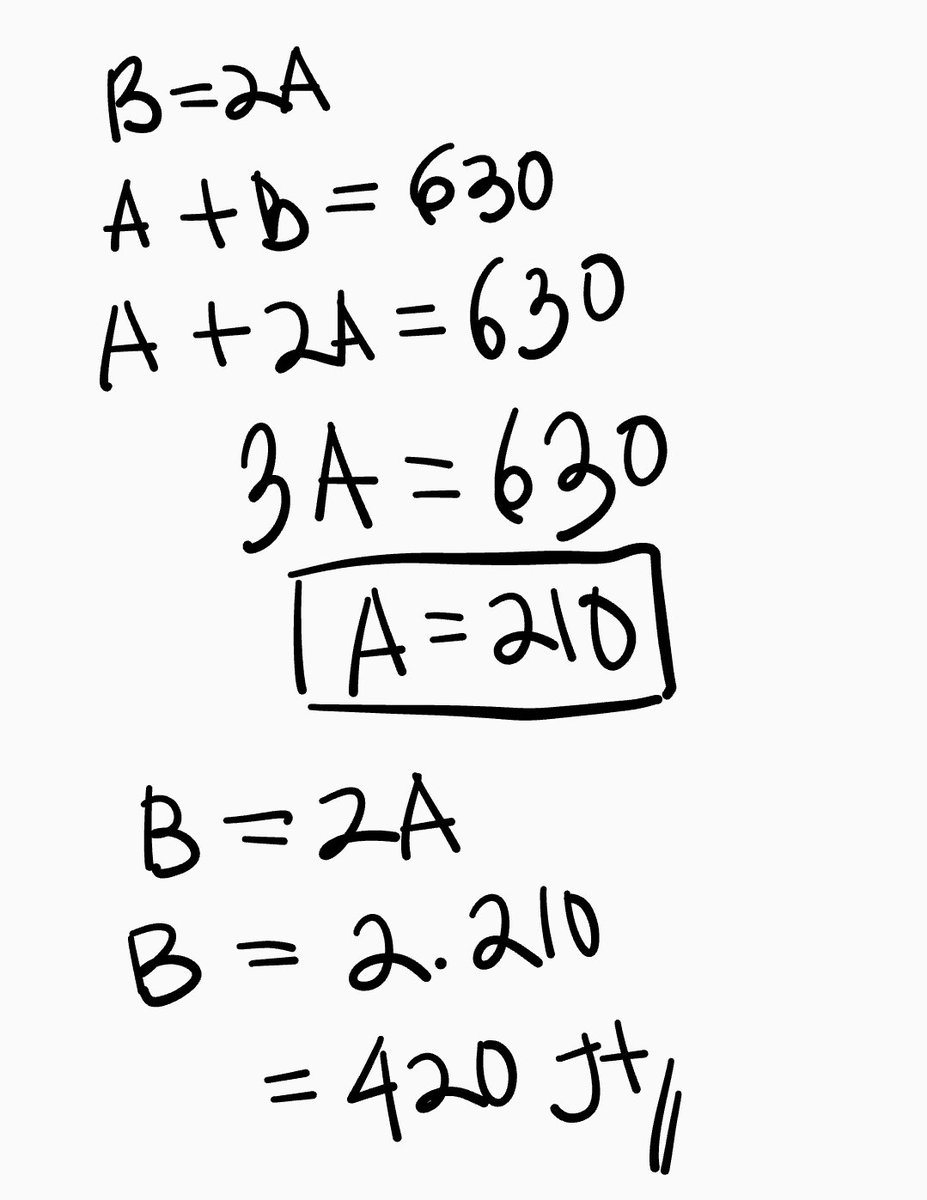 B=2A
A+B=630
A+2A=630
3A=630
A=210
B=2A
B=2.210
=420 Jt//